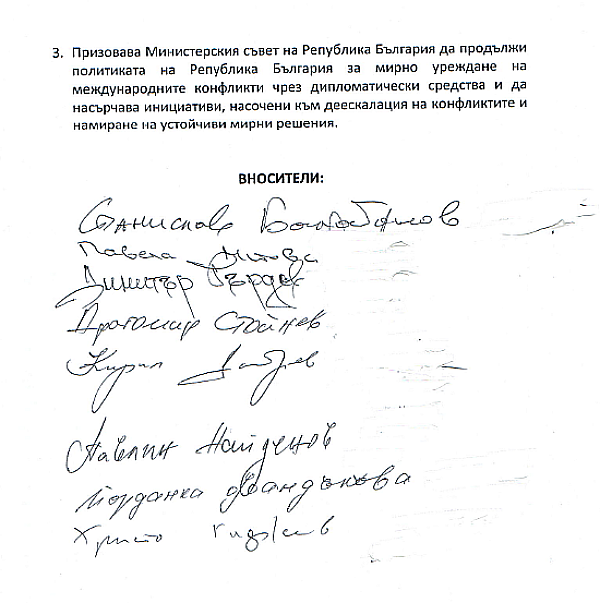 3. Призовава Министерския съвет на Република България да продължи
политиката на Република България за мирно уреждане на
международните конфликти чрез дипломатически средства и да
насърчава инициативи, насочени към деескалация на конфликтите и
намиране на устойчиви мирни решения.
ВНОСИТЕЛИ:
Станислав
Павела Митова
Димитър Гърдев
Драгомир Стойнев
Кирил Добрев
Павлин Найденов
Йорданка Фандъкова
Христо Гаджев